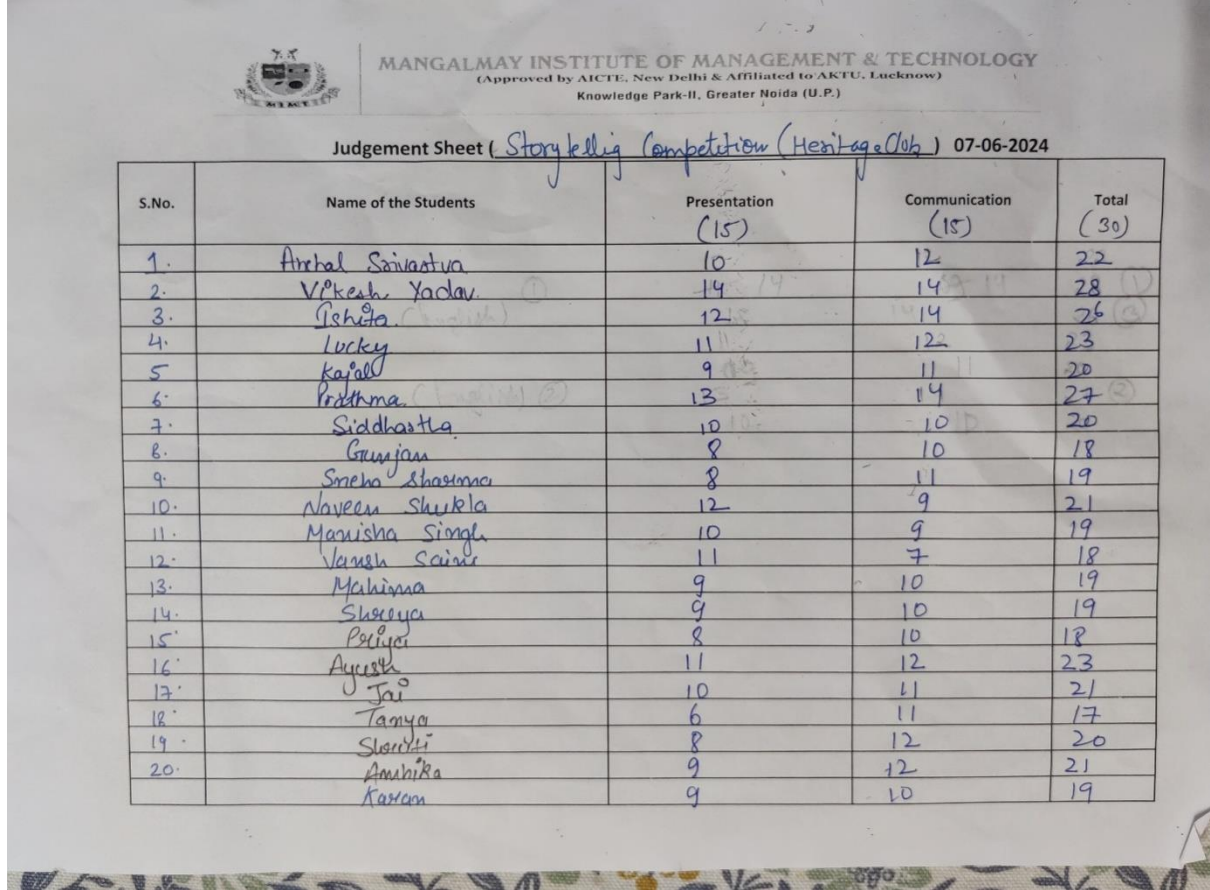 MANGALMAY INSTITUTE OF MANAGEMENT & TECHNOLOGY
(Approved by AICTE, New Delhi & Affiliated to AKTU, Lucknow)
Knowledge Park-II, Greater Noida (U.P.)
MIMT
Judgement Sheet ( Storytellig Competition (Heritage Club ) 07-06-2024
S.No. Name of the Students Presentation Communication Total
(15) (15) (30)
1. Anchal Srivastva 10 12 22
2. Vikesh Yadav. 14 14 28
3. Ishita 12 14 26
4. Lucky 11 12 23
5 Kajal 9 11 20
6. Prathma 13 14 27
7. Siddhartha 10 10 20
8. Gunjan 8 10 18
9. Sneha Sharma 8 11 19
10. Naveen Shukla 12 9 21
11. Manisha Singh 10 9 19
12. Vansh Saini 11 7 18
13. Mahima 9 10 19
14. Shreya 9 10 19
15 Priya 8 10 18
16 Ayush 11 12 23
17. Jai 10 11 21
18 Tanya 6 11 17
19 Shruti 8 12 20
20. Ambika 9 12 21
Karan 9 10 19